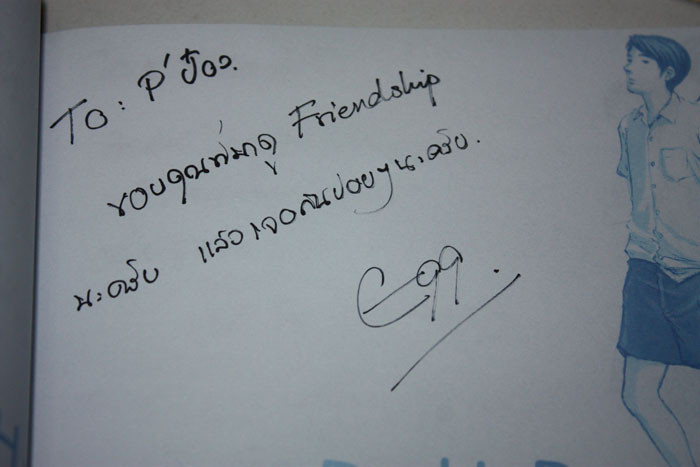 To: P' ป๊อง.
ขอบคุณที่มาดู Friendship
นะครับ แล้วเจอกันบ่อยๆนะครับ.
Egg.